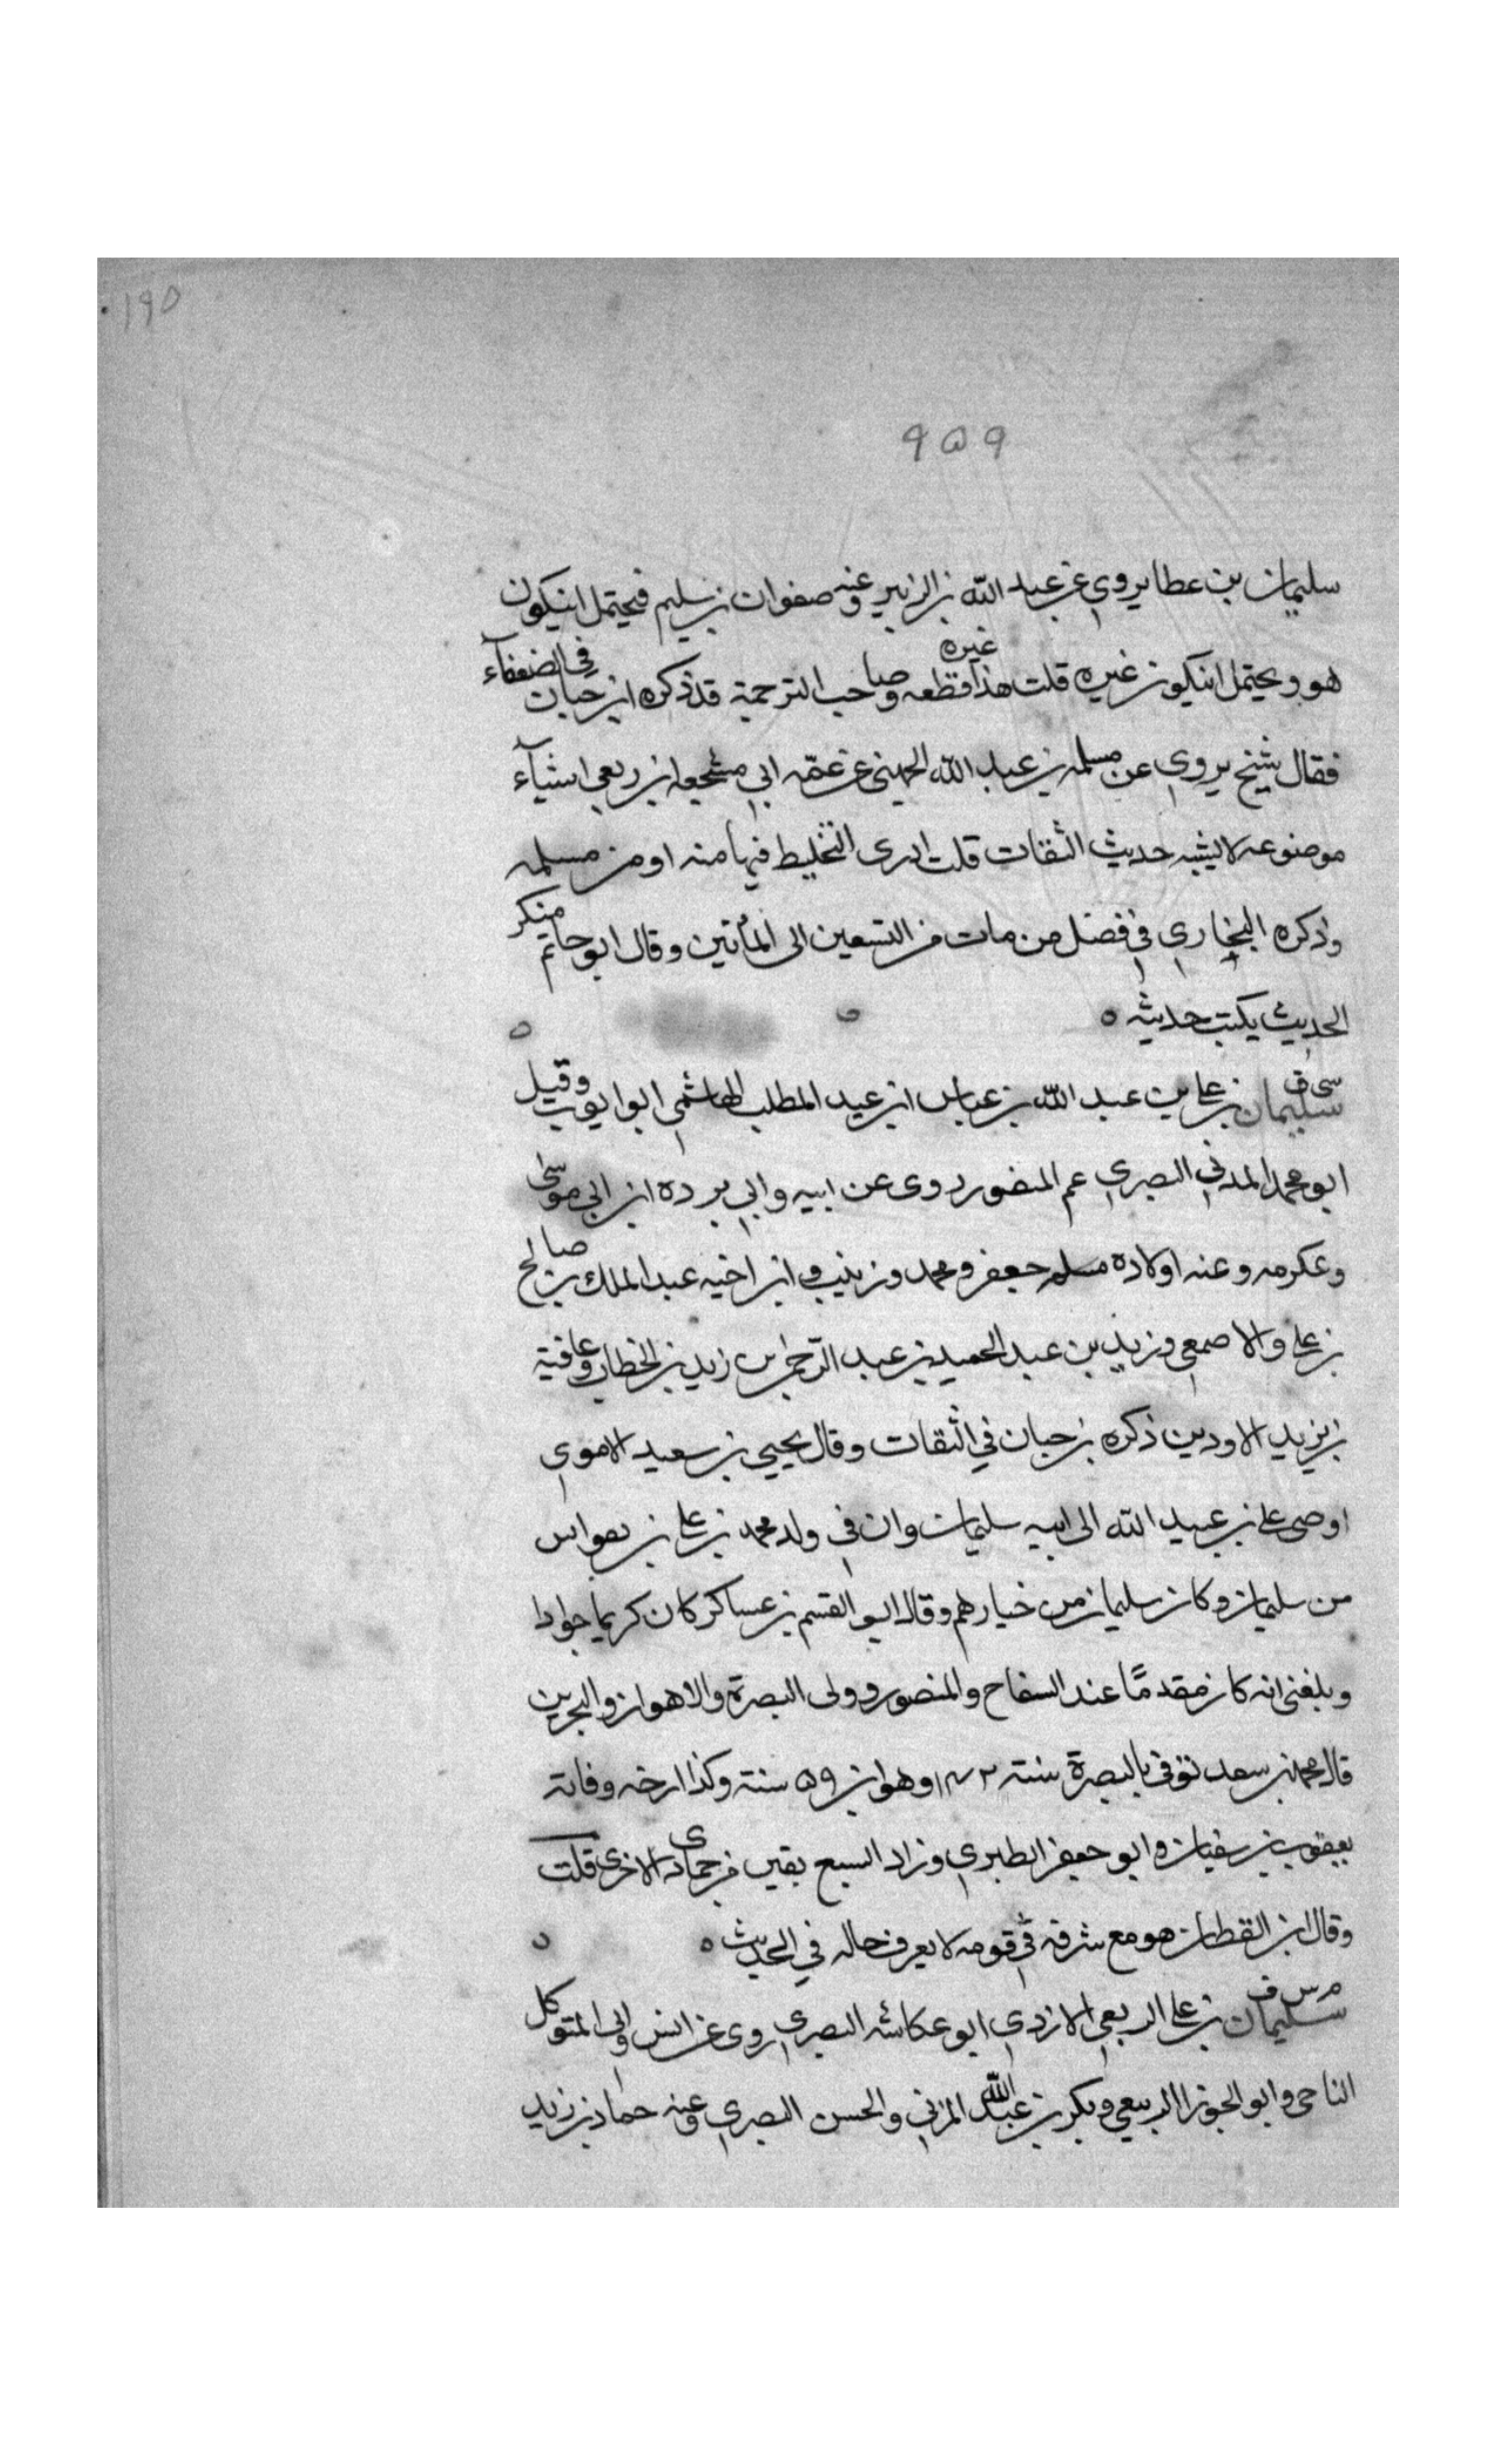 ۱۹۵
۹۵۹
سليمان بن عطا يروي عن عبد الله بن الزبير وعنه صفوان بن سليم فيحتمل ان يكون
هو ويحتمل ان يكون غيره قلت هذا غيره قطعه وصاحب الترجمة قد ذكره ابن حبان في الضعفآء
فقال شيخ يروي عن مسلمه بن عبد الله الجهني عن عمّه ابي مشجعه ابن ربعي اشيآء
موضوعه لا يشبه حديث الثقات قلت ادرى التخليط فيها منه او من مسلمه
وذكره البخاري في فضل من مات من التسعين الى المأتين وقال ابو حاتم منكر
الحديث يكتب حديثه ه
سى ق سليمان بن علي بن عبد الله بن عباس ابن عبد المطلب الهاشمي ابو ايوب وقيل
ابو محمد المدني البصري عم المنصور روى عن ابيه وابي برده ابن ابي موسى
وعكرمه وعنه اولاده جعفر ومحمد وزينب وابن اخيه عبد الملك بن صالح
بن علي والاصمعي وزيد بن عبد الحميد بن عبد الرحمن بن زيد بن الخطاب وعافية
بن يزيد الاودين ذكره بن حبان في الثقات وقال يحيي بن سعيد الاموي
اوصى علي بن عبيد الله الى ابيه سليمان وان في ولد محمد بن علي بن
من سليمان وكان سليمان من خيارهم وقال ابو القسم بن عساكر كان كريما جوادا
وبلغني انه كان مقدمًا عند السفاح والمنصور وولى البصرة والاهواز والبحرين
قال محمد بن سعد توفي بالبصرة سنة ۱۴۲ وهو ابن ۵۹ سنة وكذا ارخه وفاته
يعقوب بن سفيان وابو جعفر الطبري وزاد السبع بقين من جمادى الاخرى قلت
وقال ابن القطان هو مع شرفه في قومه لا يعرف حاله في الحديث ه
م س ق سليمان بن علي الربعي الازدي ابو عكاشه البصري روى عن انس وابي المتوكل
الناجى وابو الجوزا الربيعي وبكر بن عبد الله المزني والحسن البصري وعنه حماد بن زيد